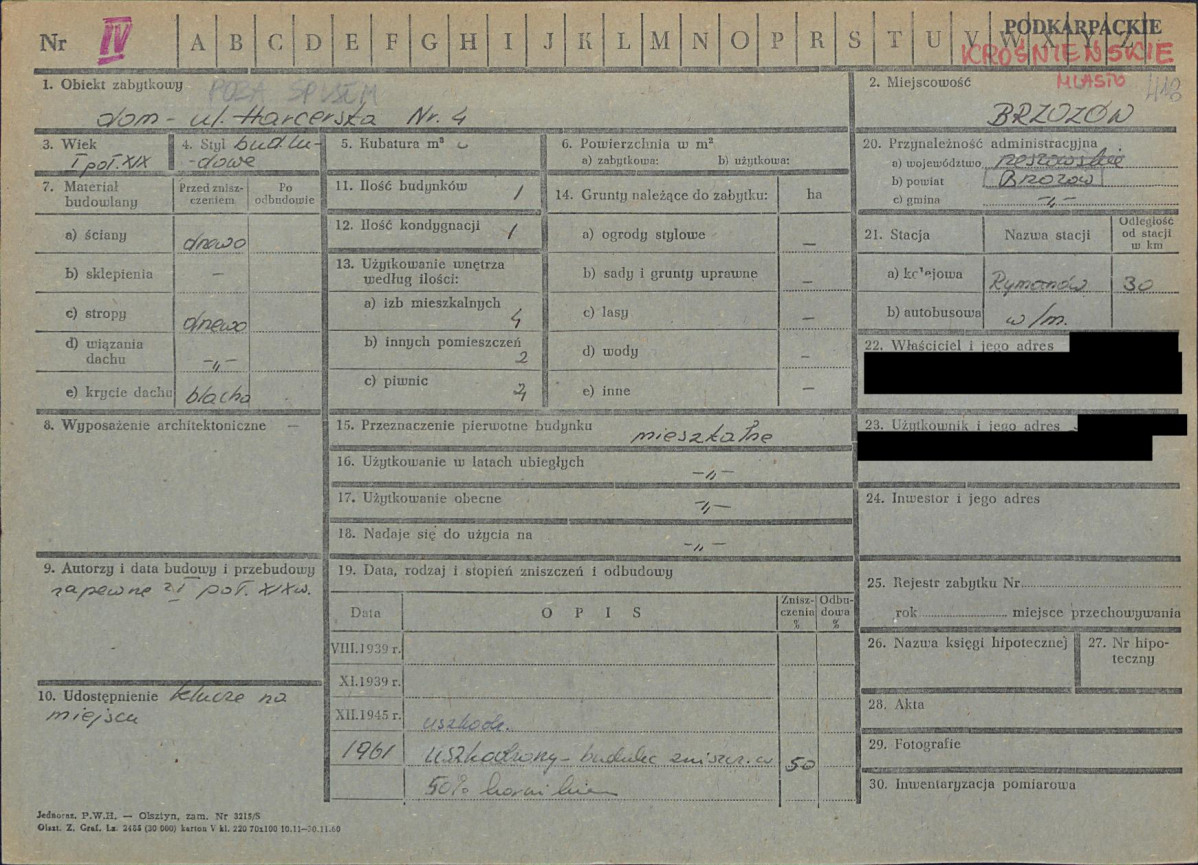 Nr IV A B C D E F G H I J K L M N O P R S T U V W X Y Z
PODKARPACKIE
KROŚNIEŃSKIE
MIASTO 418
1. Obiekt zabytkowy POZA SPISEM
dom - ul. Harcerska Nr. 4
2. Miejscowość
BRZOZÓW
3. Wiek
I poł. XIX
4. Styl budlu-
-dowe
5. Kubatura m³
6. Powierzchnia w m²
a) zabytkowa: b) użytkowa:
7. Materiał budowlany
Przed zniszczeniem
Po odbudowie
a) ściany drewo
b) sklepienia —
c) stropy drewo
d) wiązania dachu -„-
e) krycie dachu blacha
8. Wyposażenie architektoniczne —
9. Autorzy i data budowy i przebudowy
zapewne z I poł. XIXw.
10. Udostępnienie klucze na
miejscu
11. Ilość budynków 1
12. Ilość kondygnacji 1
13. Użytkowanie wnętrza
według ilości:
a) izb mieszkalnych 4
b) innych pomieszczeń 2
c) piwnic 2
14. Grunty należące do zabytku: ha
a) ogrody stylowe —
b) sady i grunty uprawne —
c) lasy —
d) wody —
e) inne —
15. Przeznaczenie pierwotne budynku mieszkalne
16. Użytkowanie w latach ubiegłych -„-
17. Użytkowanie obecne -„-
18. Nadaje się do użycia na -„-
19. Data, rodzaj i stopień zniszczeń i odbudowy
Data OPIS Zniszczenia % Odbudowa %
VIII.1939 r.
XI.1939 r.
XII.1945 r. uszkodz.
1961 uszkodzony - budulec zniszcz. w 50
50%
20. Przynależność administracyjna
a) województwo rzeszowskie
b) powiat Brzozów
c) gmina -„-
21. Stacja Nazwa stacji Odległość od stacji w km
a) kolejowa Rymanów 30
b) autobusowa w/m.
22. Właściciel i jego adres
23. Użytkownik i jego adres
24. Inwestor i jego adres
25. Rejestr zabytku Nr
rok miejsce przechowywania
26. Nazwa księgi hipotecznej
27. Nr hipoteczny
28. Akta
29. Fotografie
30. Inwentaryzacja pomiarowa
Jednoraz. P.W.H. — Olsztyn, zam. Nr 3215/S
Olszt. Z. Graf. Lz. 2455 (30 000) karton V kl. 220 70x100 10.11—30.11.60